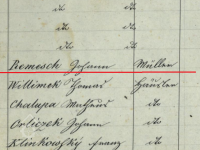 do do
do do
do do
Remesch Johann Müller
Willimek Thomas Häusler
Chalupa Matheus do
Orliczek Johann do
Klinkowsky Franz do